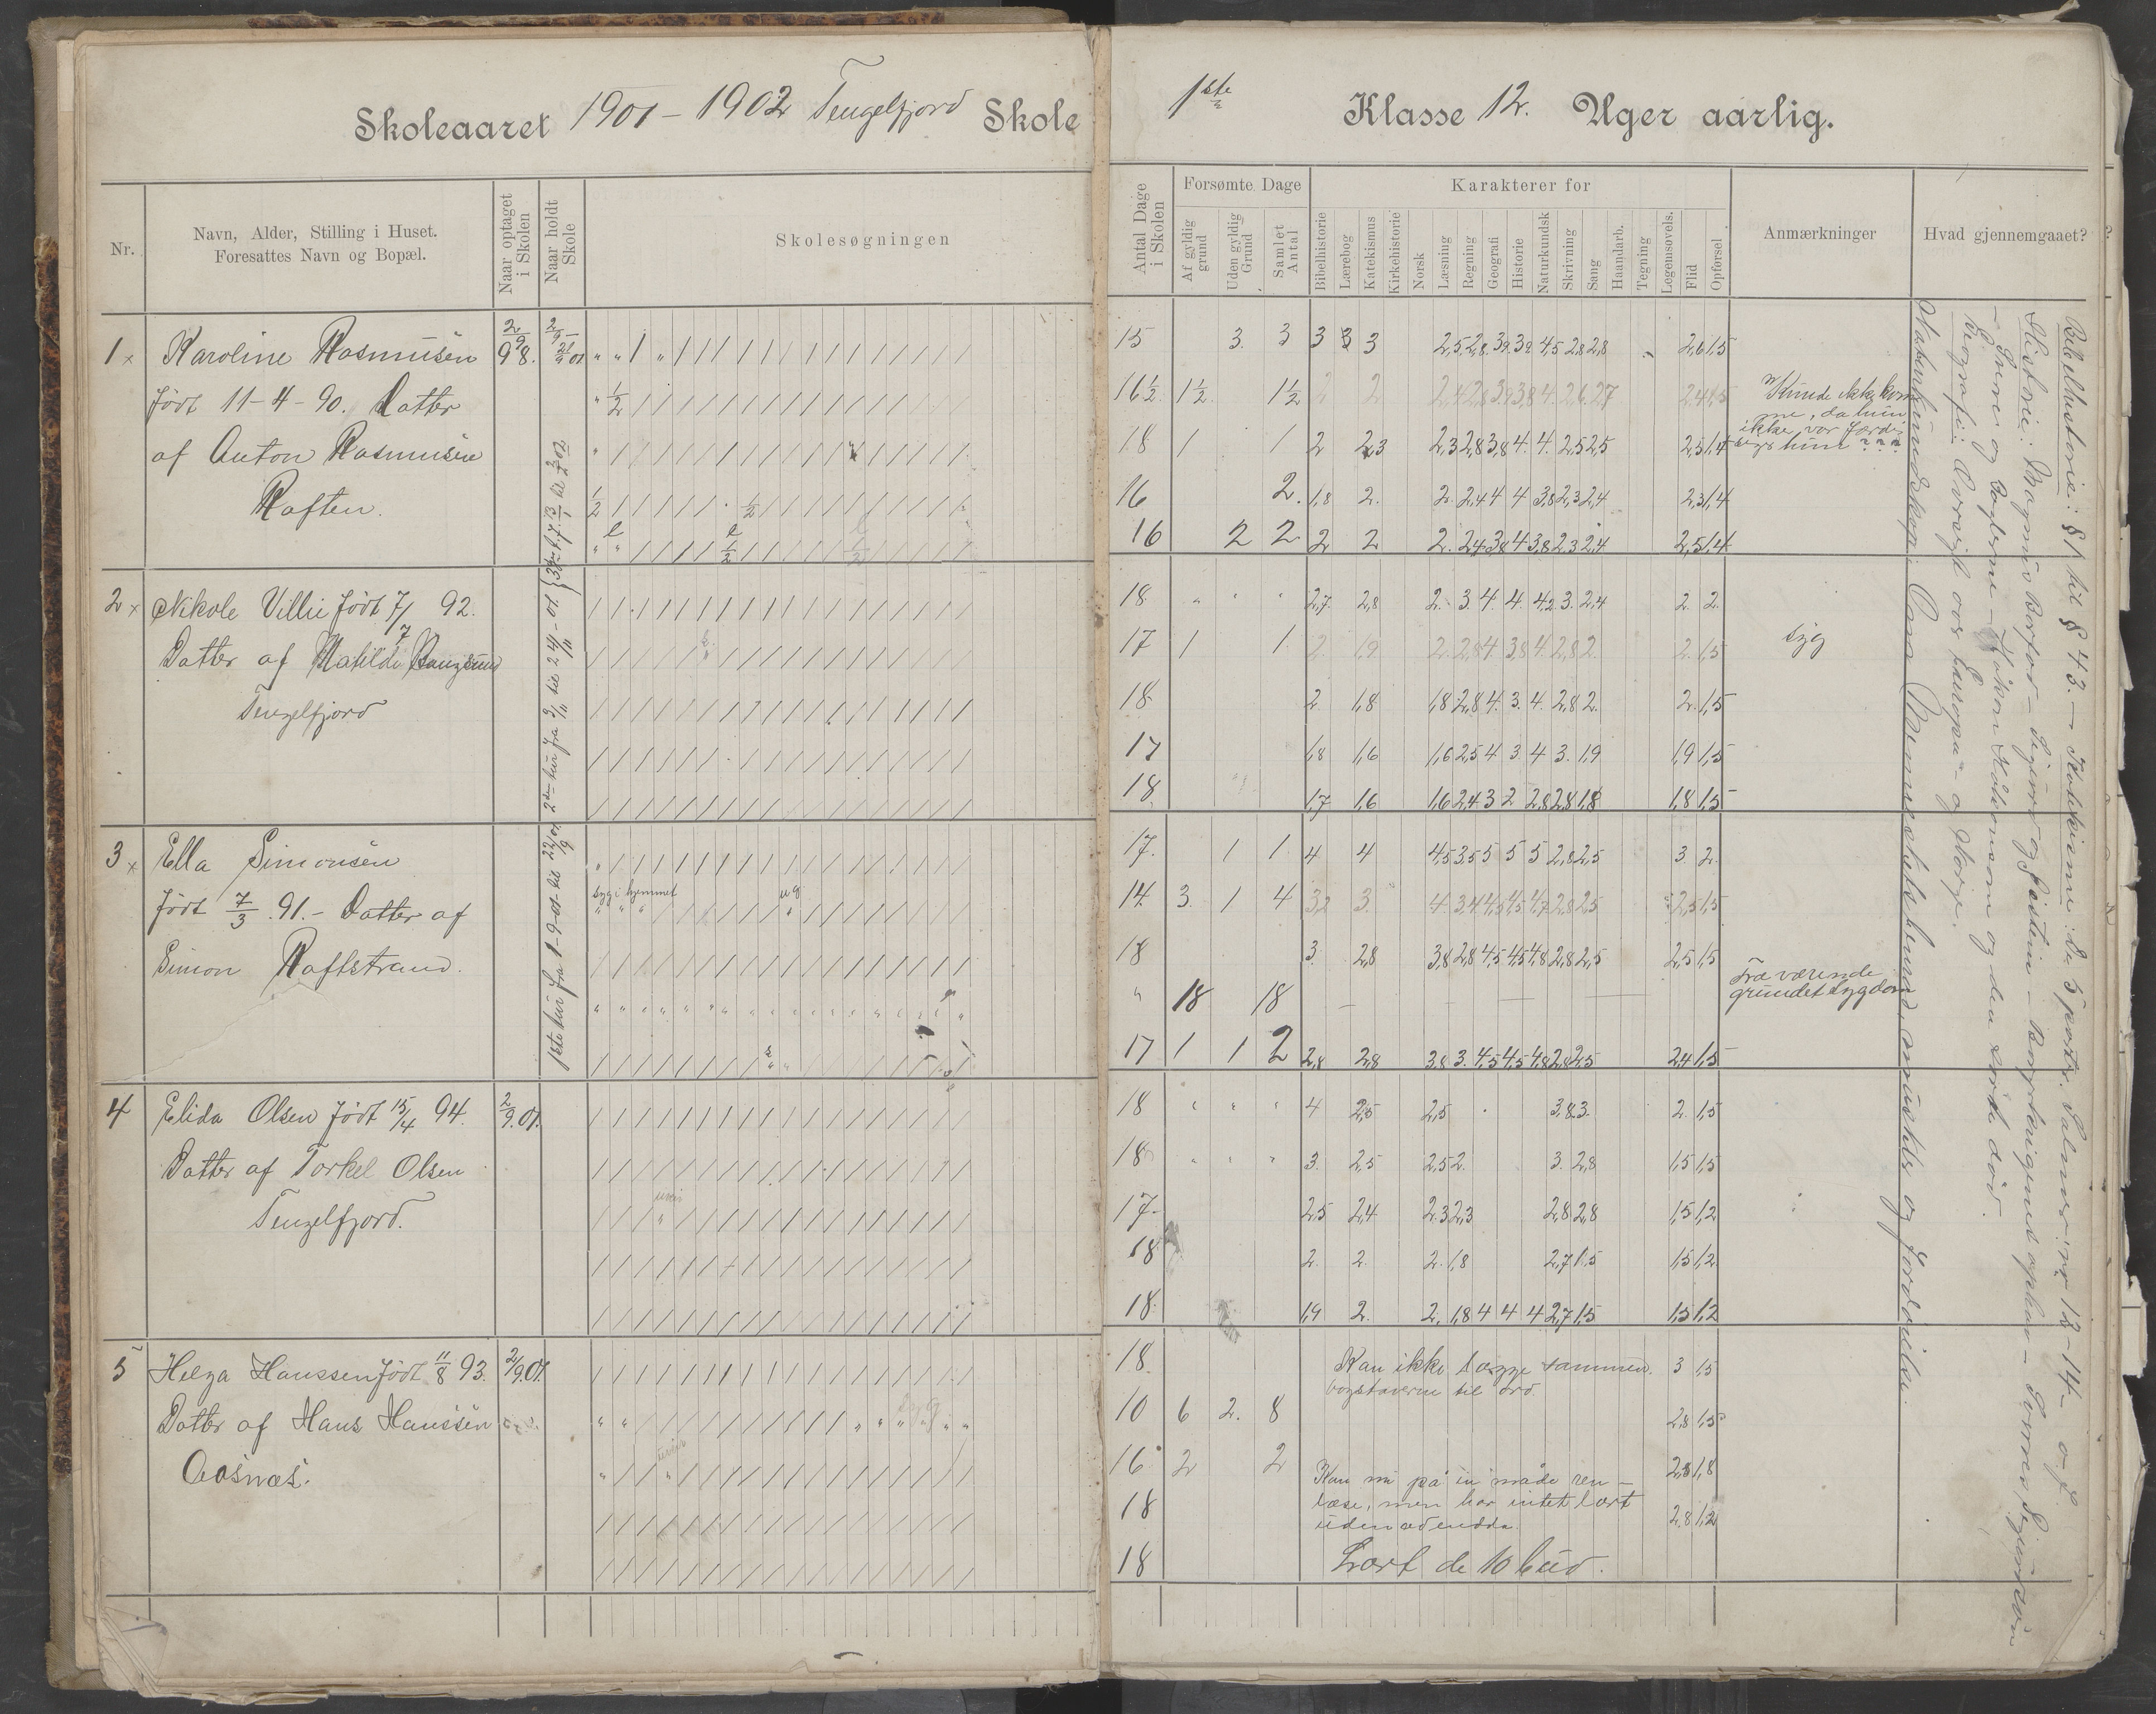 Skoleaaret 1901 - 1902 Tengelfjord Skole
Nr.
Navn, Alder, Stilling i Huset.
Foresattes Navn og Bopæl.
Naar optaget
i Skolen
Naar holdt
Skole
Skolesøgningen
1 x Karoline Rasmusen
født 11-4-90. Datter
af Anton Rasmusen
Raften.
2 x Nikole Villie født 7/7 92.
Datter af Matilde
Tengelfjord
3 x Ella Simonsen
født 7/3 91. - Datter af
Simon Raftstrand.
syg i hjemmet
4 Elida Olsen født 15/4 94. 2/9.01.
Datter af Torkel Olsen
Tengelfjord.
5 Helga Hanssen født 11/8 93. 2/9.01.
Datter af Hans Hanssen
Aasnæs.
1ste Klasse 12. Uger aarlig.
Antal Dage
i Skolen
Forsømte Dage
Af gyldig
grund
Uden gyldig
Grund
Samlet
Antal
Karakterer for
Bibelhistorie
Lærebog
Katekismus
Kirkehistorie
Norsk
Læsning
Regning
Geografi
Historie
Naturkundsk
Skrivning
Sang
Haandarb.
Tegning
Legemsøvels.
Flid
Opførsel
Anmærkninger
Hvad gjennemgaaet?
15 3. 3 3 3 3 2,5 2,8 3,9 3,9 4,5 2,8 2,8 2,6 1,5
16½ 1½ 1½ 2 2 2,4 2,8 3,9 3,8 4. 2,6 2,7 2,4 1,5
Kunde ikke kom
me, da hun
ikke var færdig
18 1 1 2 2,3 2,3 2,8 3,8 4. 4. 2,5 2,5 2,5 1,4
16 2. 1,8 2. 2. 2,4 4 4 3,8 2,3 2,4 2,3 1,4
16 2 2 2 2 2. 2,4 3,8 4 3,8 2,3 2,4 2,5 1,4
18 2,7. 2,8 2. 3. 4. 4. 4,2 3. 2,4 2. 2.
17 1 1 2. 1,9 2. 2,8 4. 3,8 4. 2,8 2. 2. 1,5 syg
18 2. 1,8 1,8 2,8 4. 3. 4. 2,8 2. 2. 1,5
17 1,8 1,6 1,6 2,5 4 3 4 3. 1,9 1,9 1,5
18 1,7 1,6 1,6 2,4 3 2 2,8 2,8 1,8 1,8 1,5
17. 1 1 4 4 4,5 3,5 5 5 5 2,8 2,5 3 2
14. 3. 1 4 3,2 3. 4. 3,4 4,5 4,5 4,7 2,8 2,5 2,5 1,5
18 3. 2,8 3,8 2,8 4,5 4,5 4,8 2,8 2,5 2,5 1,5
18 18
Fraværende
grundet sygdom
17 1 1 2 2,8 2,8 3,8 3. 4,5 4,5 4,8 2,8 2,5 2,4 1,5
18 4 2,5 2,5 3,8 3. 2. 1,5
18 3. 2,5 2,5 2. 3. 2,8 1,5 1,5
17. 2,5 2,4 2,3 2,3 2,8 2,8 1,5 1,2
18 2. 2. 2. 1,8 2,7 1,5 1,5 1,2
18. 1,9 2. 2. 1,8 4 4 4 2,7 1,5 1,5 1,2
18. Kan ikke lægge sammen 3 1,5
bogstaverne til ord.
10 6 2. 8 2,8 1,5
16 2 2 2,8 1,8
Kan nu på en måde ren-
læse, men har intet lært
18 2,8 1,2
udenad endda.
18 Lært de 10 bud.
Bibelhistorie: § 1 til § 43. - Katekisme: De 5 parter. Salmer: nr 12-14-
Historie: Magnus Barfod - Sigurd og Eistein - Borgerkrigens ophav - Sverre Sigurdsøn
- Sverre og Baglerne - Håkon Håkonsøn og den sorte død.
Geografi: Oversigt over Europa - og Norge.
Naturkundskap: Om Menneskets benrad, muskler og fordøielse.